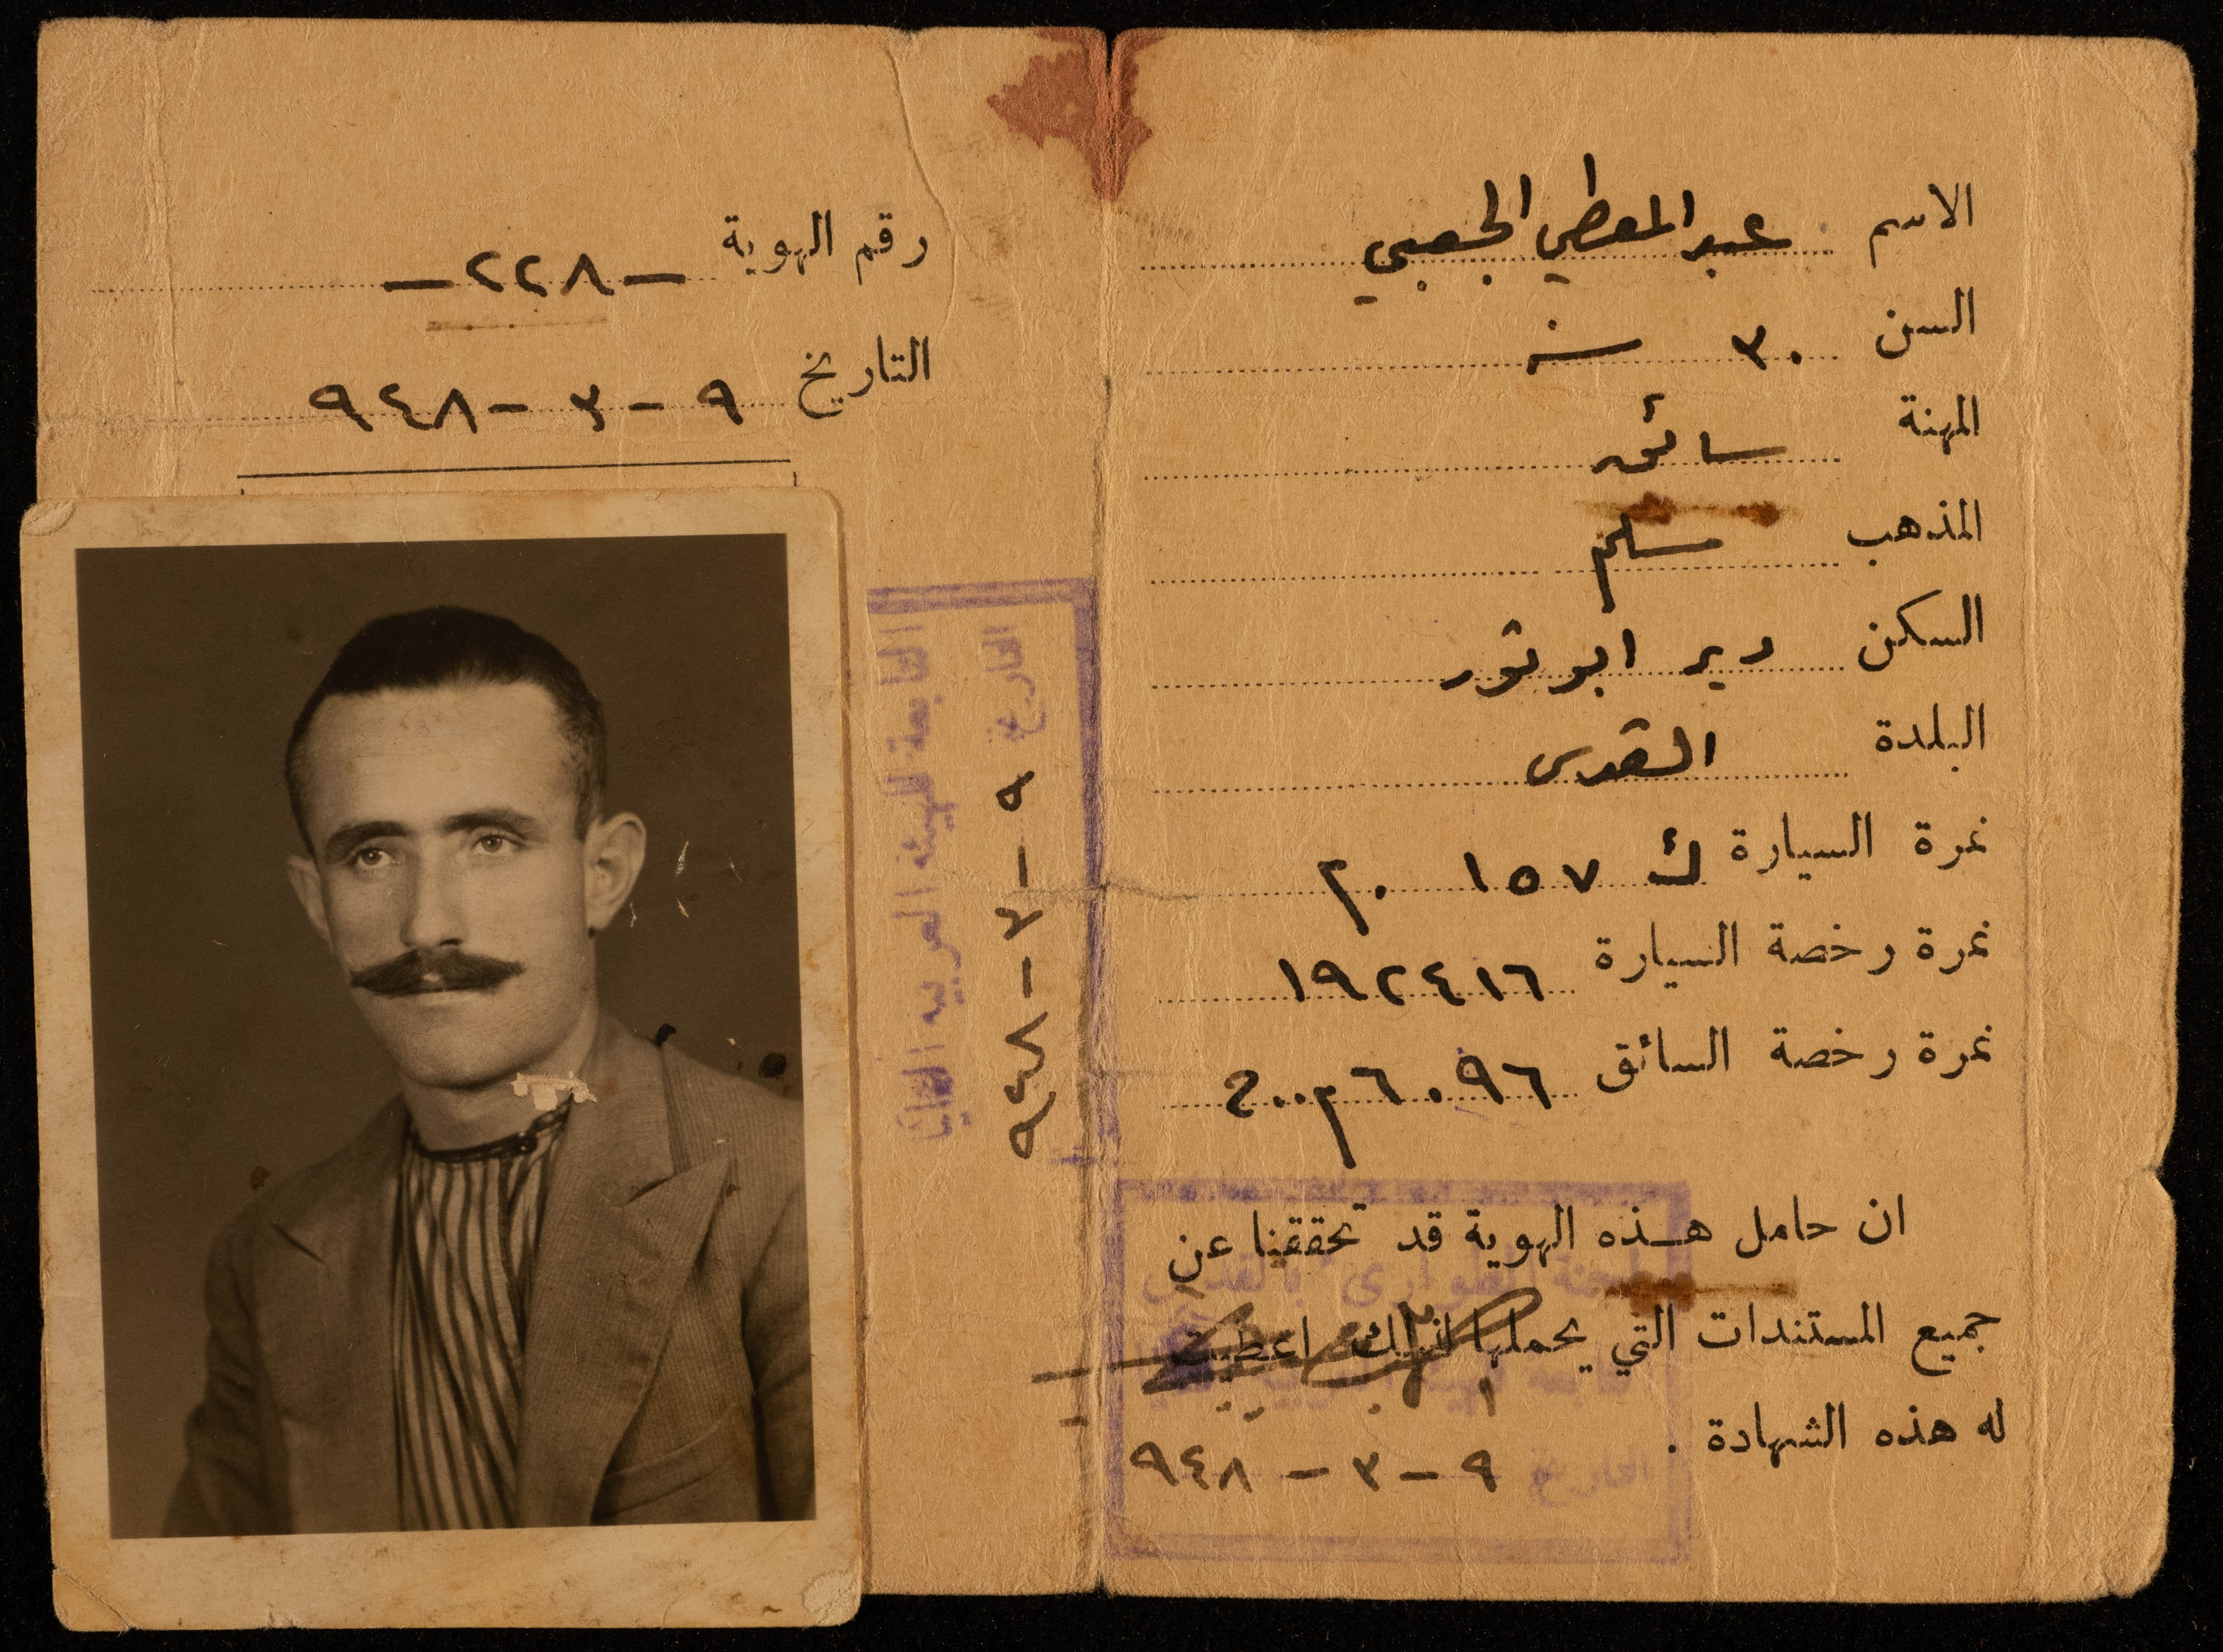 الاسم عبد المعطي الجعبي
السن ٣٠ سنة
المهنة سائق
المذهب مسلم
السكن دير ابو ثور
البلدة القدس
نمرة السيارة ك ١٥٧ م٠
نمرة رخصة السيارة ١٩٢٤١٦
نمرة رخصة السائق
ان حامل هـذه الهوية قد تحققنا عن
جميع المستندات التي يحملها لذلك اعطيت
له هذه الشهادة .
لجنة الطوارئ بالقدس
التابعة للهيئة العربية العليا
التاريخ ٩ - ٣ - ٩٤٨
رقم الهوية - ٢٢٨ -
التاريخ ٩ - ٣ - ٩٤٨
التابعة للهيئة العربية العليا
التاريخ ٩ - ٣ - ٩٤٨